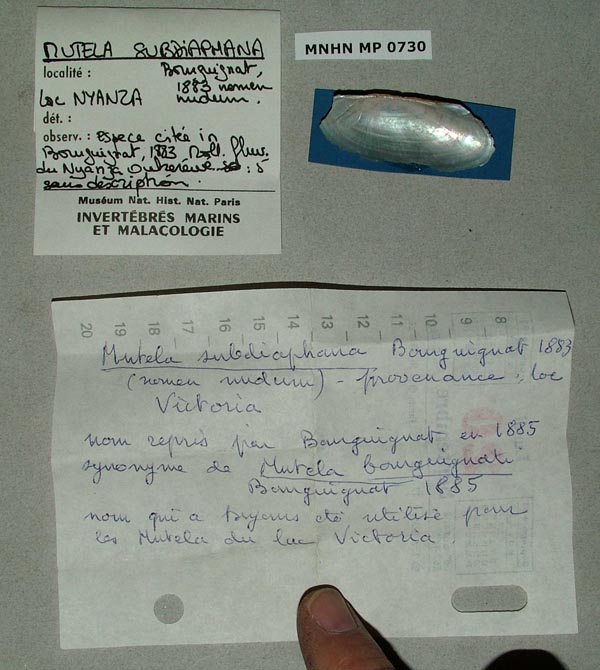 MUTELA SUBDIAPHANA
localité : Bourguignat,
1883 nomen
Lac NYANZA nudum.
dét. :
observ. : Espece citée in
Bourguignat, 1883 Moll. fluv.
du Nyanza Oukéréwé : 5
sans description.
Muséum Nat. Hist. Nat. Paris
INVERTÉBRÉS MARINS
ET MALACOLOGIE
MNHN MP 0730
20 19 18 17 16 15 14 13 12 11 10 9 8
Mutela subdiaphana Bourguignat 1883
(nomen nudum) - provenance : lac
Victoria
nom repris par Bourguignat en 1885
synonyme de Mutela bourguignati
Bourguignat 1885
nom qui a toujours été utilisé pour
les Mutela du lac Victoria.